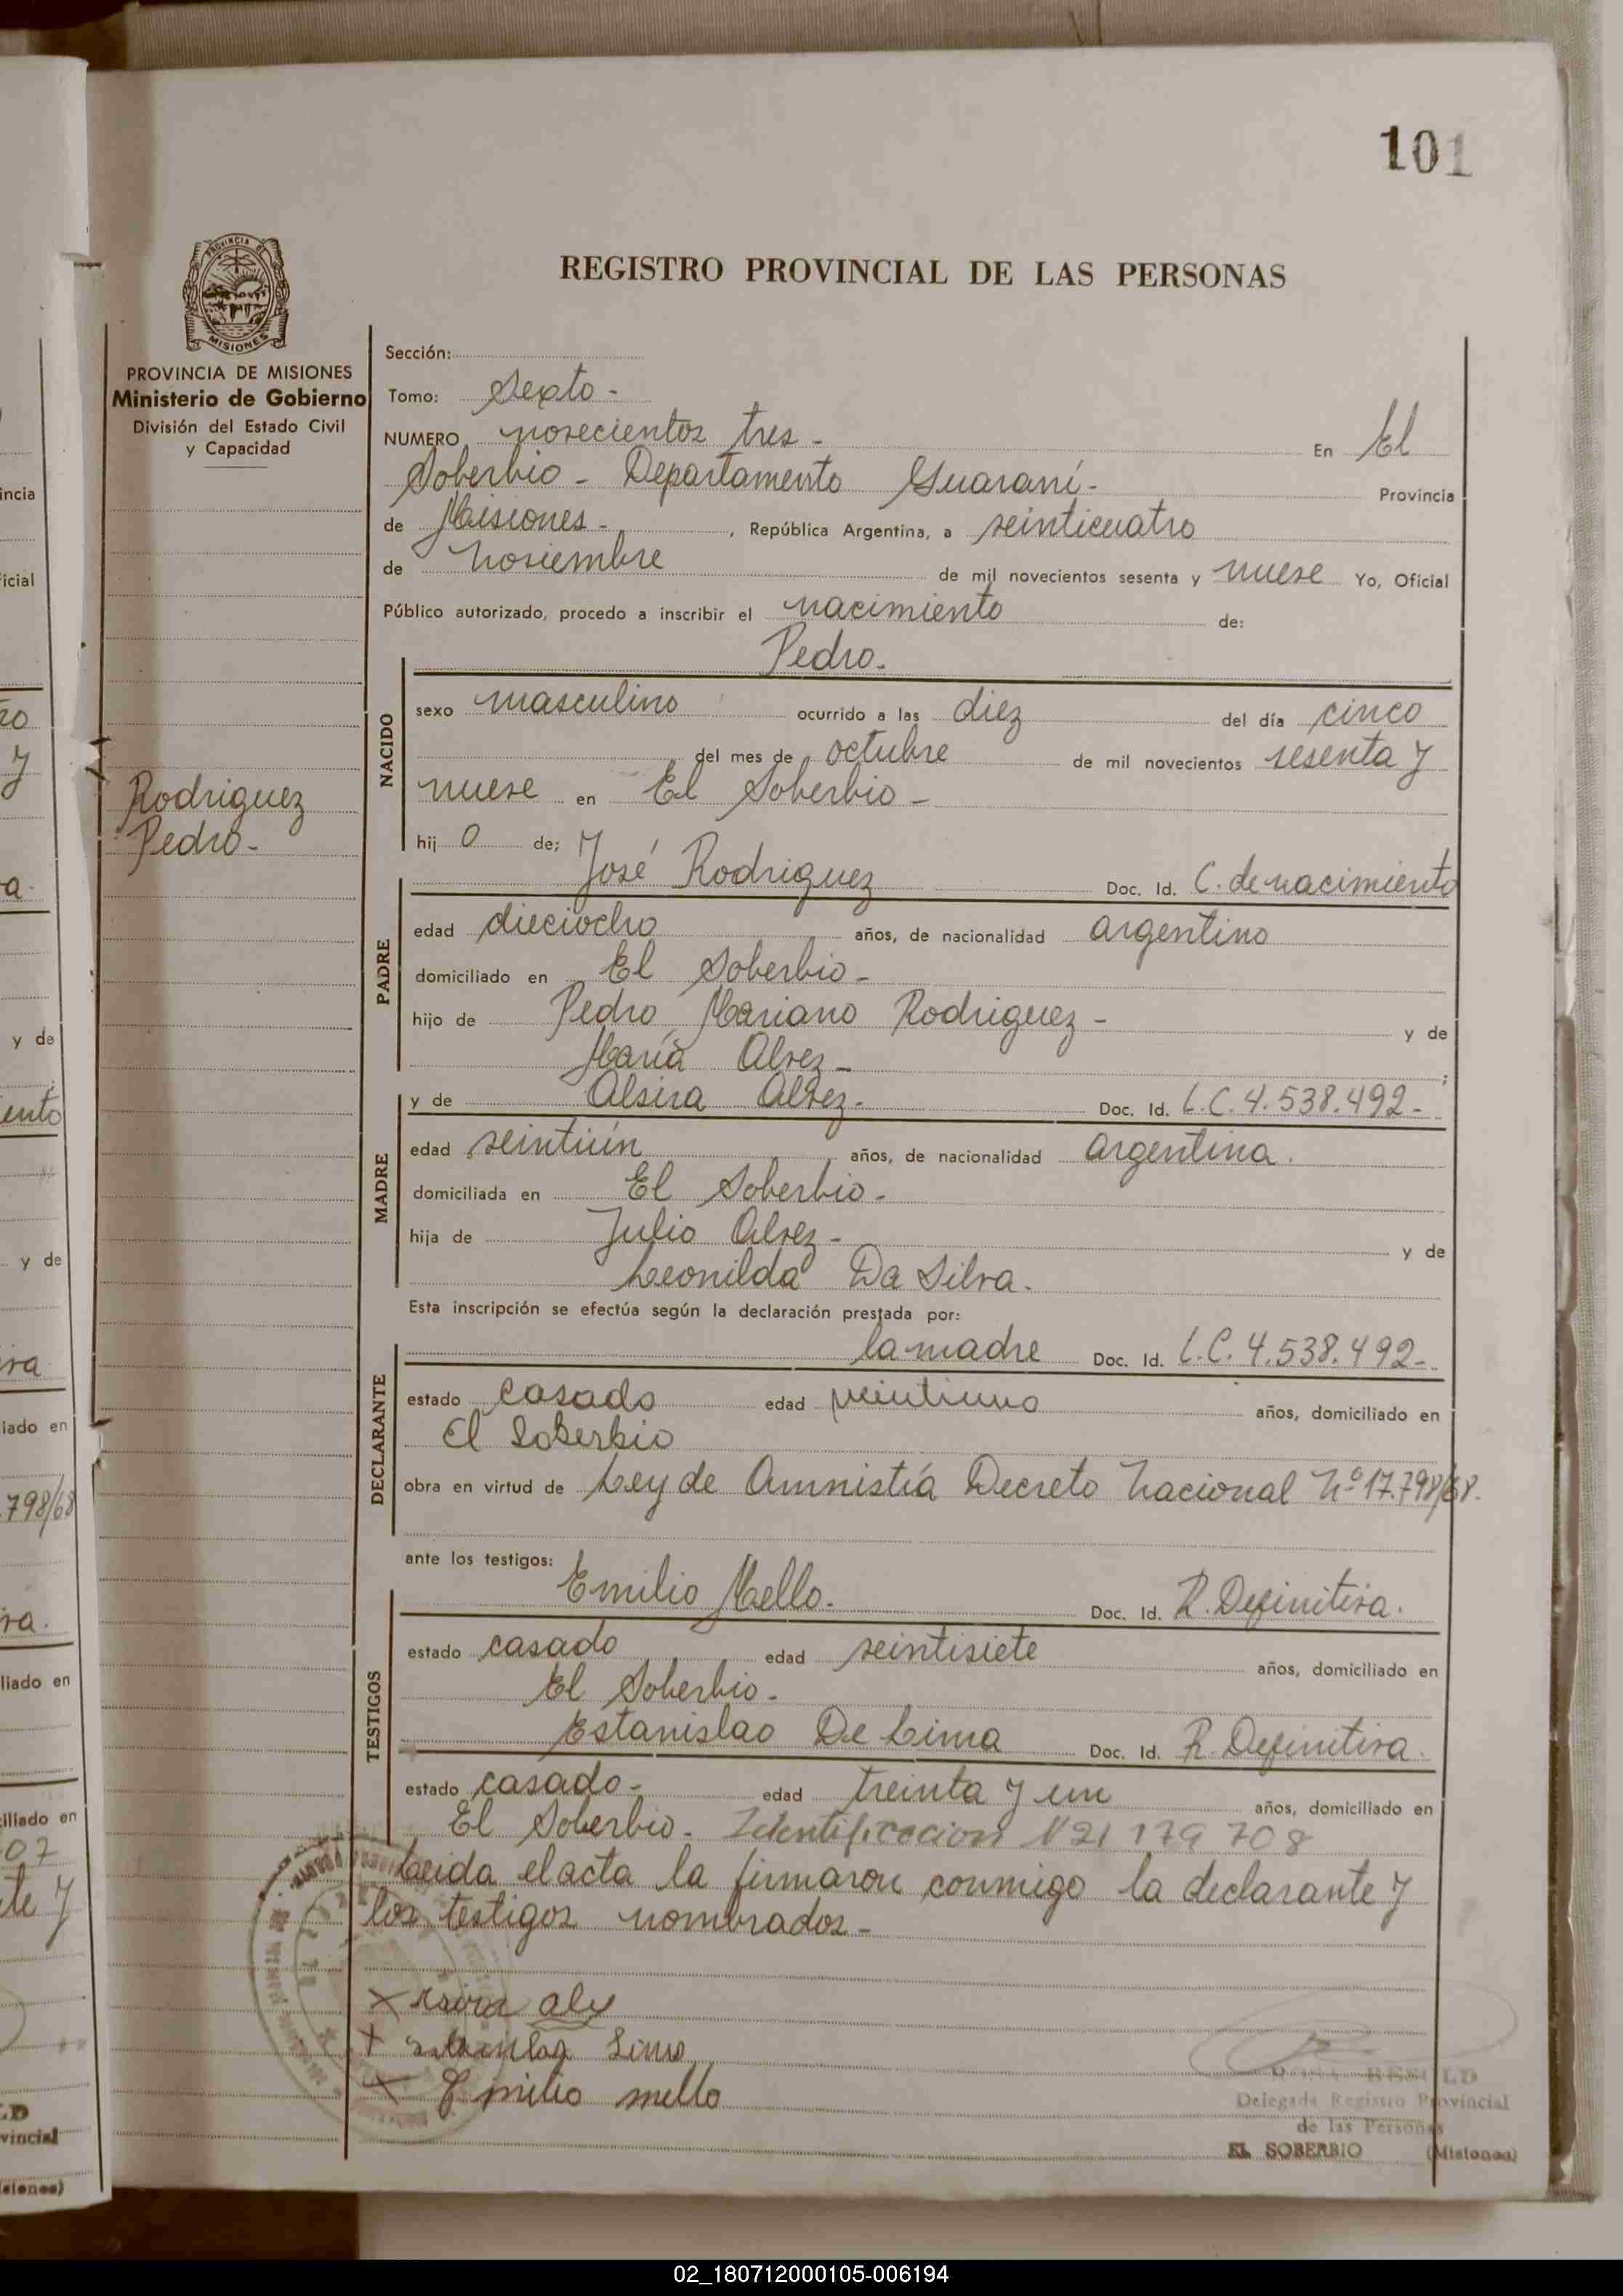 101
REGISTRO PROVINCIAL DE LAS PERSONAS
PROVINCIA DE
MISIONES
PROVINCIA DE MISIONES
Ministerio de Gobierno
División del Estado Civil
y Capacidad
Rodriguez
Pedro-
Sección:
Tomo: Sexto-
NUMERO novecientos tres- En El
Soberbio - Departamento Guaraní- Provincia
de Misiones-, República Argentina, a veinticuatro
de noviembre de mil novecientos sesenta y nueve Yo, Oficial
Público autorizado, procedo a inscribir el nacimiento de:
Pedro.
NACIDO
sexo masculino ocurrido a las diez del día cinco
del mes de octubre de mil novecientos sesenta y
nueve en El Soberbio-
hij o de; José Rodriguez Doc. Id. C. de nacimiento
PADRE
edad dieciocho años, de nacionalidad argentino
domiciliado en El Soberbio-
hijo de Pedro Mariano Rodriguez- y de
María Alvez- ;
y de Alsira Alvez- Doc. Id. L.C. 4.538.492-
MADRE
edad veintiún años, de nacionalidad argentina.
domiciliada en El Soberbio-
hija de Julio Alvez- y de
Leonilda Da Silva.
Esta inscripción se efectúa según la declaración prestada por:
la madre Doc. Id. L.C. 4.538.492-
DECLARANTE
estado casado edad veintiuno años, domiciliado en
El Soberbio
obra en virtud de Ley de Amnistía Decreto Nacional Nº 17.798/68.
ante los testigos:
Emilio Mello. Doc. Id. R. Definitiva.
TESTIGOS
estado casado edad veintisiete años, domiciliado en
El Soberbio-
Estanislao De Lima Doc. Id. R. Definitiva.
estado casado- edad treinta y un años, domiciliado en
El Soberbio- Identificacion N 21 179 708
Leida el acta la firmaron conmigo la declarante y
los testigos nombrados-
X
X Lima
X Emilio mello
Delegada Registro Provincial
de las Personas
EL SOBERBIO (Misiones)
y de
y de
798/68
02_180712000105-006194